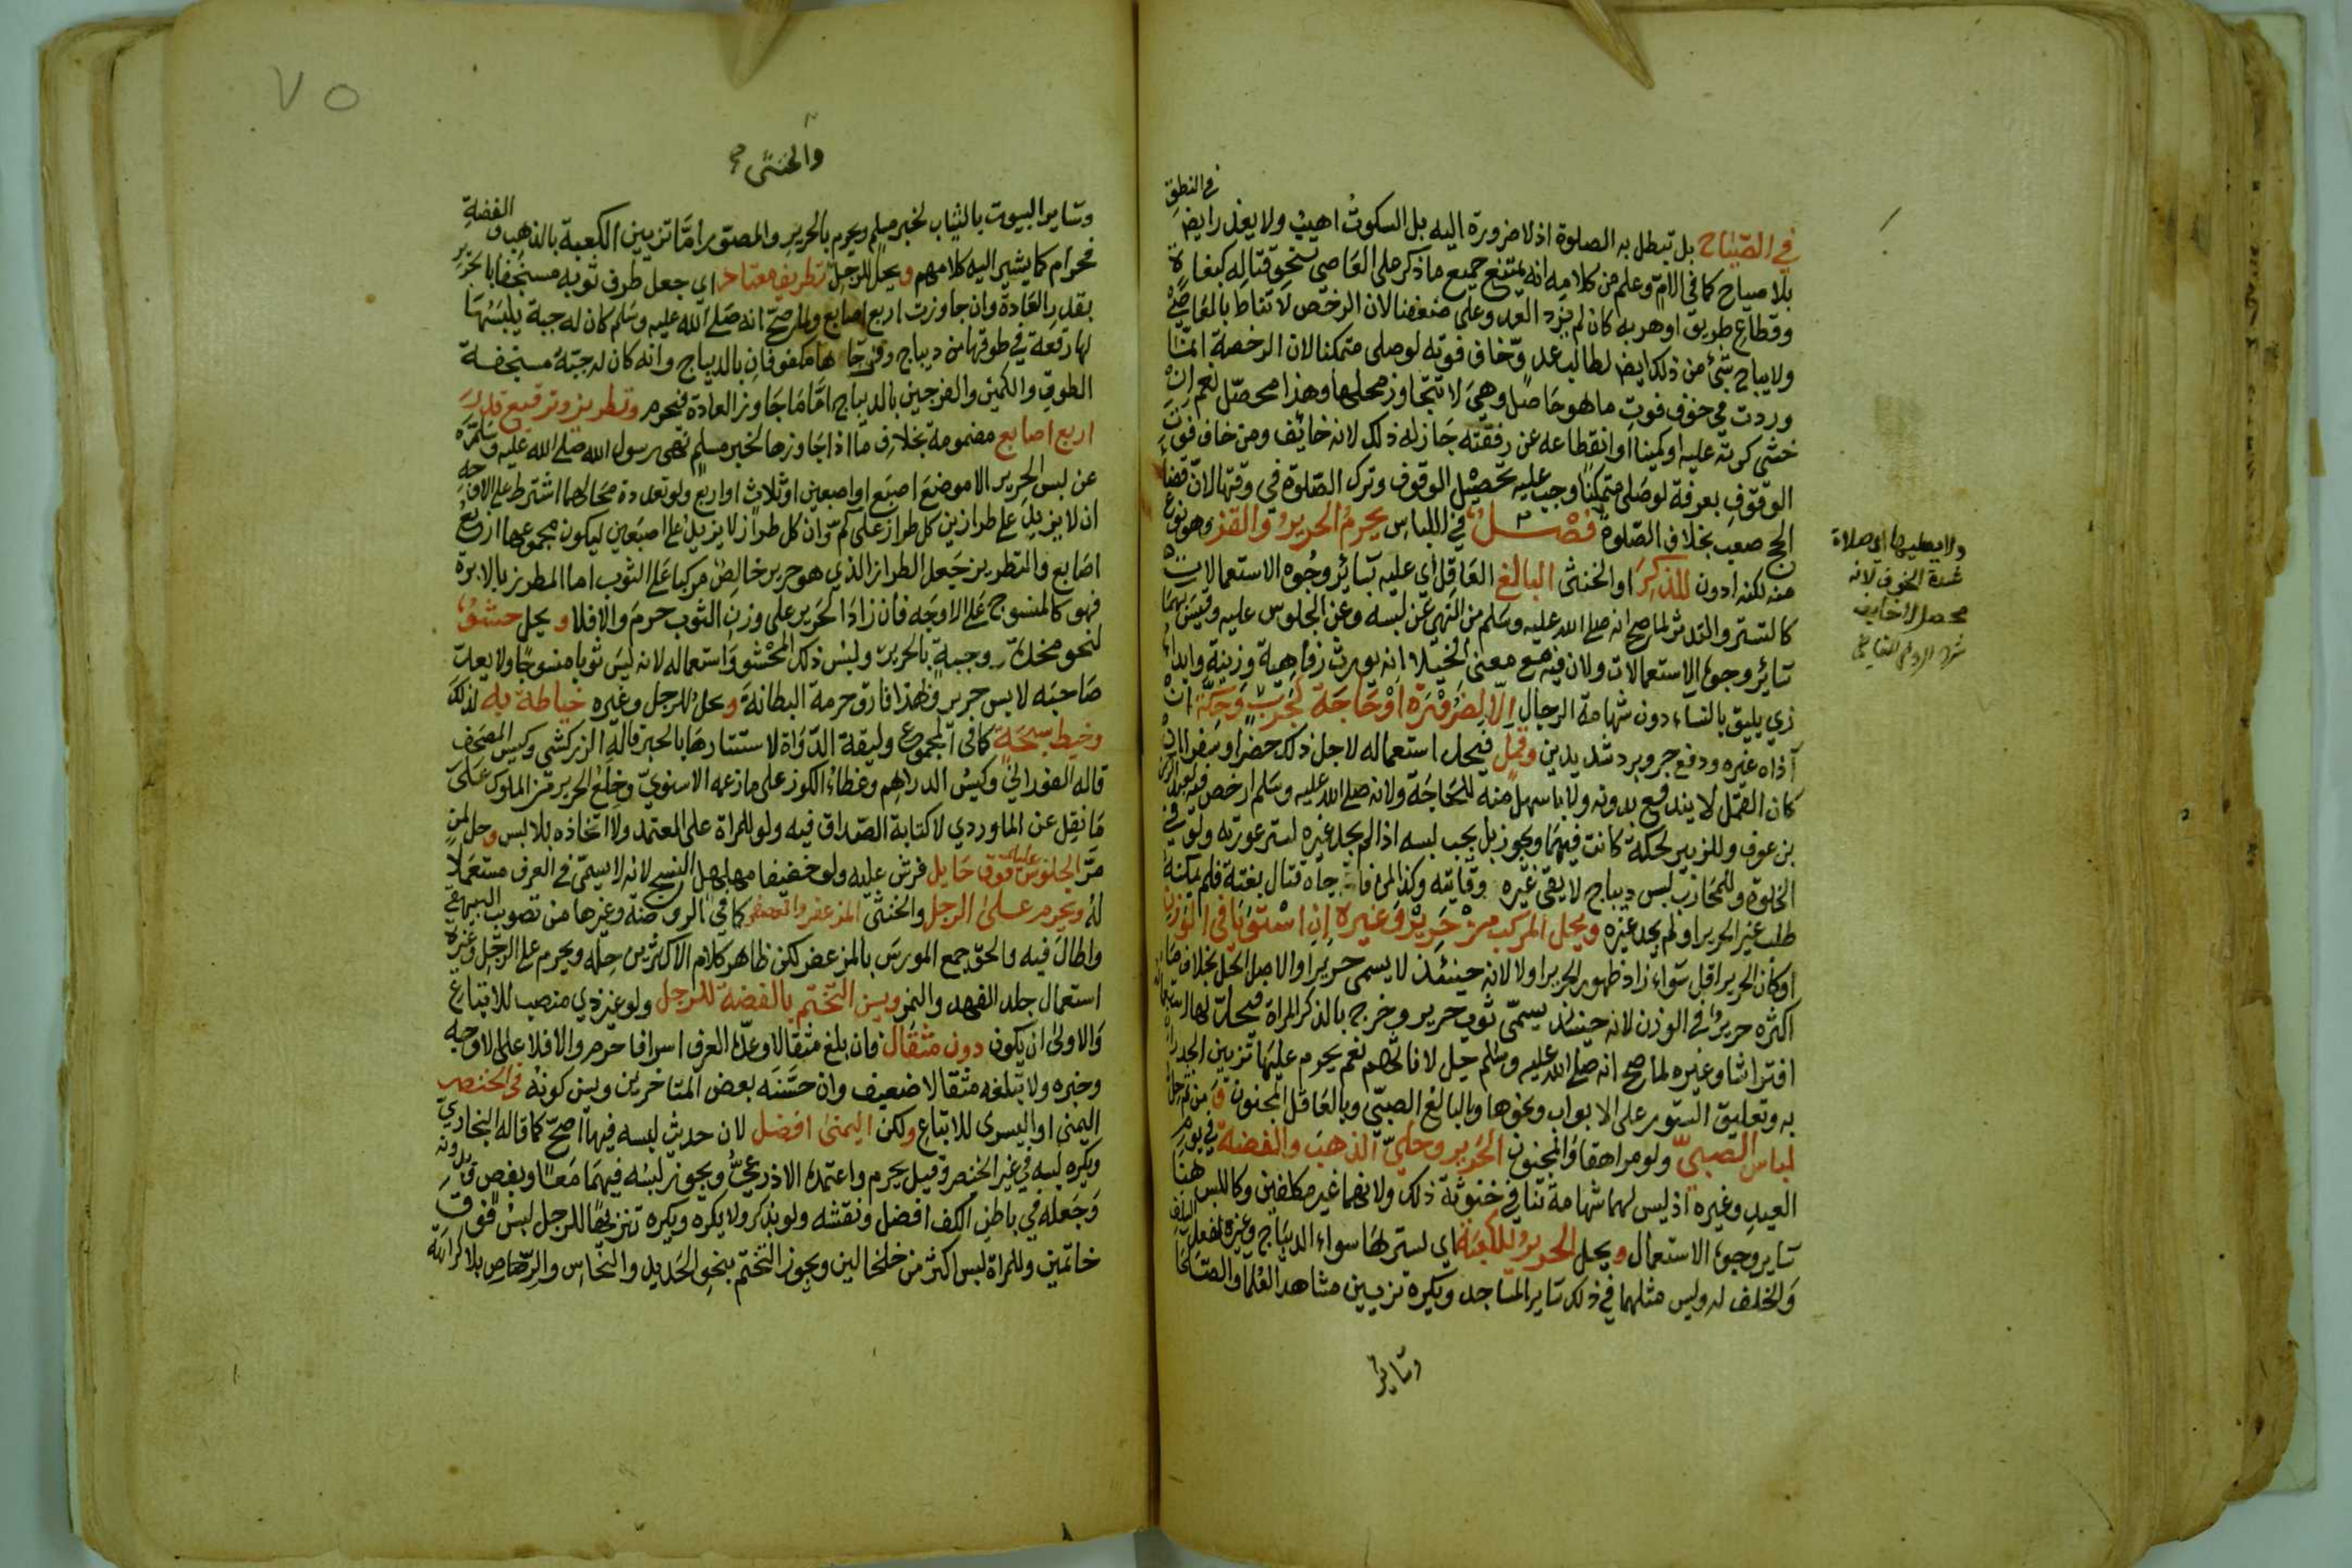 في النطق
في الصياح بل تبطل به الصلوة اذ لا ضرورة اليه بل السكوت اهيب ولا يعذر ايض
بلا صياح كما في الام وعلم من كلامه انه يمتنع جميع ما ذكر على العاصي بنحو قتاله كبغاة
وقطاع طريق او هربه كان لم يزد العدو على ضعفنا لان الرخص لا تناط بالمعاصي
ولا يباح شئ من ذلك ايض لطالب عدو خاف فوته لو صلى متمكنا لان الرخصة انما
وردت في خوف فوت ما هو حاصل وهي لا تتجاوز محلها وهذا محصل نعم ان
خشى كرته عليه او كمينا او انقطاعه عن رفقته جاز له ذلك لانه خائف ومن خاف فوت
الوقوف بعرفة لو صلى متمكنا وجب عليه تحصيل الوقوف وترك الصلوة في وقتها لان قضاء
الحج صعب بخلاف الصلوة فصل في اللباس يحرم الحرير والقز وهو نوع
منه لكنه ادون للذكر او الخنثى البالغ العاقل اي عليه بسائر وجوه الاستعمالات
كالتستر والتدثر لما صح انه صلى الله عليه وسلم من النهي عن لبسه وعن الجلوس عليه وقيس بهما
سائر وجوه الاستعمالات ولان فيه مع معنى الخيلا انه يورث رفاهية وزينة وابداء
زي يليق بالنساء دون شهامة الرجال الا لضرورة او حاجة كجرب وحكة ان
آذاه غيره ودفع حر وبرد شديدين وقمل فيحل استعماله لاجل ذلك حضرا وسفرا ان
كان القمل لا يندفع بدونه ولا باسهل منه للحاجة ولانه صلى الله عليه وسلم ارخص فيه لعبد الرحمن
بن عوف وللزبير لحكة كانت فيهما ويجوز بل يجب لبسه اذا لم يجد غيره لستر عورته ولو في
الخلوة وللمحارب لبس ديباج لا يقي غيره وقايته وكذا لمن فاجاه قتال بغتة فلم يمكنه
طلب غير الحرير او لم يجد غيره ويحل المركب من حرير وغيره ان استويا في الوزن
او كان الحرير اقل سواء زاد ظهور الحرير او لا لانه حينئذ لا يسمى حريرا والاصل الحل بخلاف ما
اكثره حرير في الوزن لانه حينئذ يسمى ثوب حرير وخرج بالذكر المراة فيحل لها استعماله
افتراشا وغيره لما صح انه صلى الله عليه وسلم حل لاناثهم نعم يحرم عليها تزيين الجدران
به وتعليق الستور على الابواب ونحوها وبالبالغ الصبي وبالعاقل المجنون ومن ثم حل
لباس الصبي ولو مراهقا والمجنون الحرير وحلي الذهب والفضة في يوم
العيد وغيره اذ ليس لهما شهامة تنافي خنوثة ذلك ولانهما غير مكلفين وكاللبس هنا
سائر وجوه الاستعمال ويحل الحرير للكعبة اي لسترها سواء الديباج وغيره لفعل السلف
والخلف له وليس مثلها في ذلك سائر المساجد ويكره تزيين مشاهد العلما والصلحا
وسائر
ولا يعليها اي صلاة
شدة الخوف لانه
محصل لا خايف
والخنثى صح
وسائر البيوت بالثياب لخبر مسلم ويحرم بالحرير والمصور اما تزيين الكعبة بالذهب والفضة
فحرام كما يشير اليه كلامهم ويحل للرجل تطريف معتاد اي جعل طرف ثوبه مسجفا بالحرير
بقدر العادة وان جاوزت اربع اصابع ولما صح انه صلى الله عليه وسلم كان له جبة يلبسها
لها رقعة في طوقها من ديباج وفرجاها مكفوفان بالديباج وانه كان له جبة مسجفة
الطوق والكمين والفرجين بالديباج اما ما جاوز العادة فيحرم وتطريز وترقيع قدر
اربع اصابع مضمومة بخلاف ما اذا جاوزها لخبر مسلم نهى رسول الله صلى الله عليه وسلم
عن لبس الحرير الا موضع اصبع او اصبعين او ثلاث او اربع ولو تعددت محالهما اشترط على الاوجه
ان لا يزيد على طرازين كل طراز على كم وان كل طراز لا يزيد على اصبعين ليكون مجموعهما اربع
اصابع والتطريز جعل الطراز الذي هو حرير خالص مركبا على الثوب اما المطرز بالابرة
فهو كالمنسوج على الاوجه فان زاد الحرير على وزن الثوب حرم والا فلا ويحل حشو
لنحو مخدة وجبة بالحرير ولبس ذلك المحشو واستعماله لانه ليس ثوبا منسوجا ولا يعد
صاحبه لابس حرير وبهذا فارق حرمة البطانة ويحل للرجل وغيره خياطة به لذلك
وخيط سبحة كما في المجموع وليقة الدواة لاستتارها بالحبر قاله الزركشي وكيس المصحف
قاله الفوراني وكيس الدراهم وغطاء الكوز على ما زعمه الاسنوي وخلع الحرير من الملوك على
ما نقل عن الماوردي لا كتابة الصداق فيه ولو للمراة على المعتمد ولا اتخاذه بلا لبس وحل لمن
مر الجلوس عليه فوق حايل فرش عليه ولو خفيفا مهلهل النسج لانه لا يسمى في العرف مستعملا
له ويحرم على الرجل والخنثى المزعفر والمعصفر كما في الروضة وغيرها من تصويب البيهقي
واطال فيه والحق جمع المورس بالمزعفر لكن ظاهر كلام الاكثرين حله ويحرم على الرجل وغيره
استعمال جلد الفهد والنمر ويسن التختم بالفضة للرجل ولو غير ذي منصب للاتباع
والاولى ان يكون دون مثقال فان بلغ مثقالا وعده العرف اسرافا حرم والا فلا على الاوجه
وخبره ولا تبلغه مثقالا ضعيف وان حسنه بعض المتاخرين ويسن كونه في الخنصر
اليمنى او اليسرى للاتباع ولكن اليمنى افضل لان حديث لبسه فيها اصح كما قاله البخاري
ويكره لبسه في غير الخنصر وقيل يحرم واعتمده الاذرعي ويجوز لبسه فيهما معا وبفص وبدونه
وجعله في باطن الكف افضل ونقشه ولو بذكر ولا يكره ويكره تنزيها للرجل لبس فوق
خاتمين وللمراة لبس اكثر من خلخالين ويجوز التختم بنحو الحديد والنحاس والرصاص بلا كراهة
٧٥